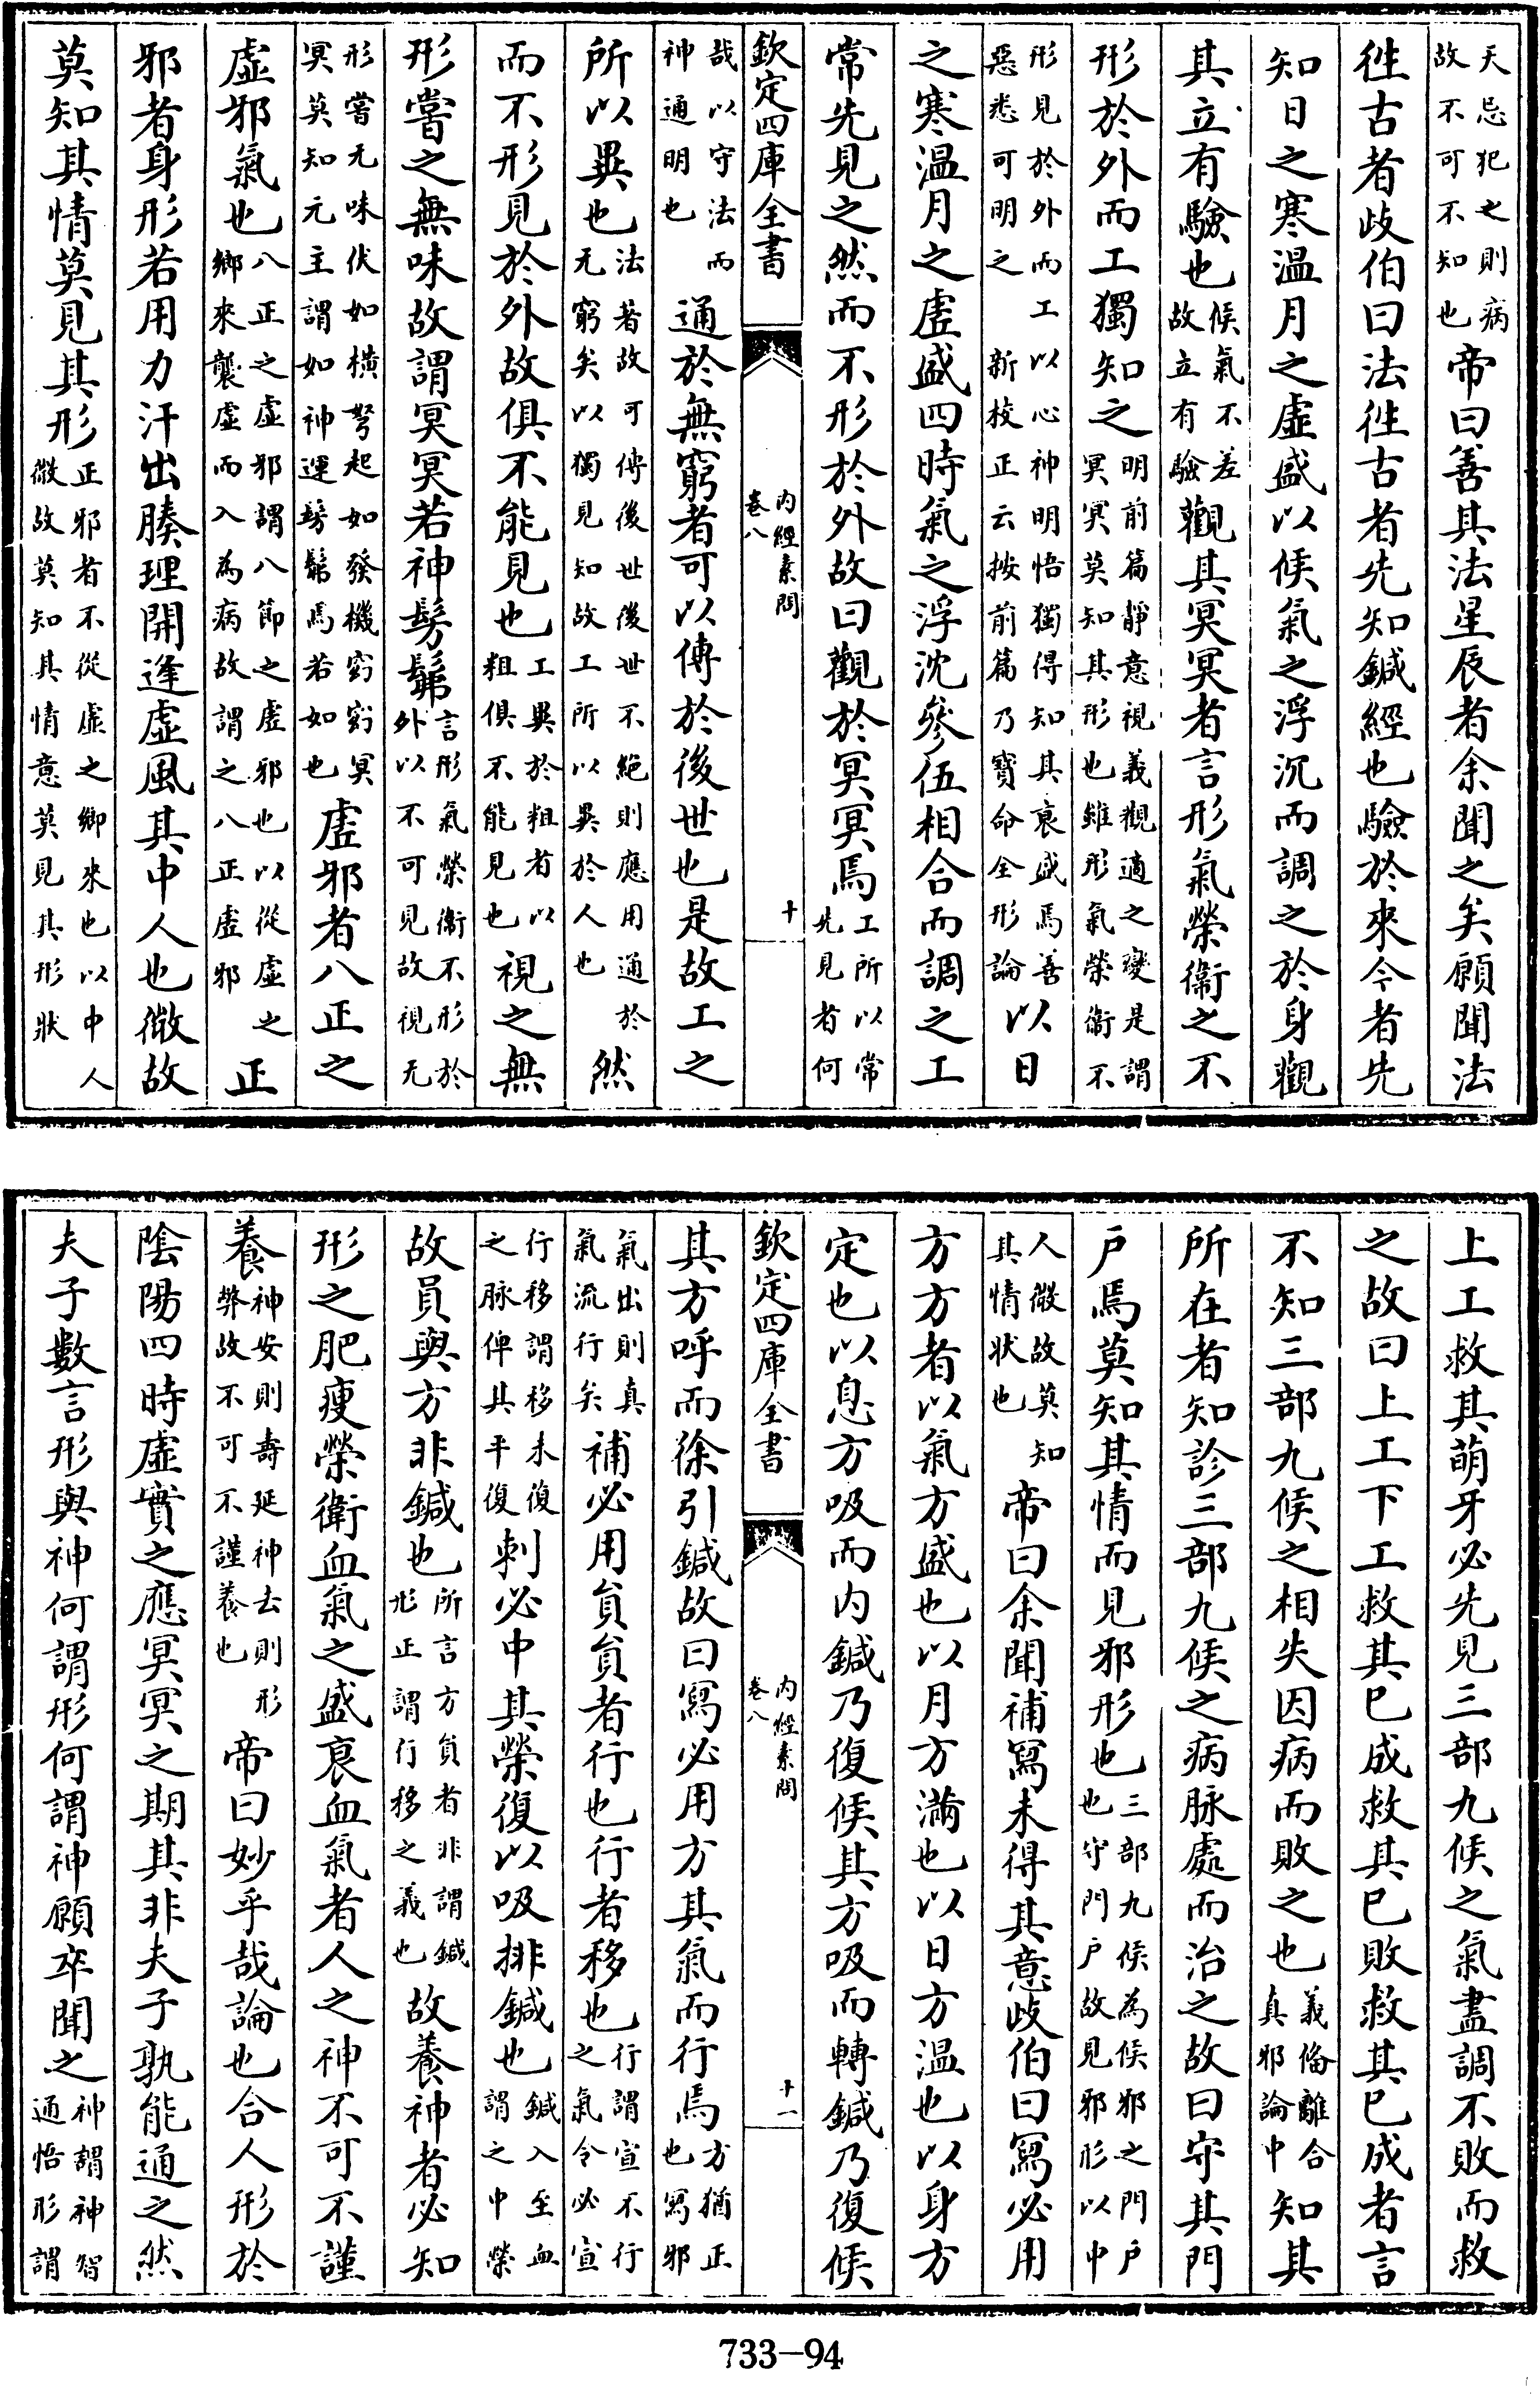 天忌犯之則病故不可不知也帝曰善其法星辰者余聞之矣願聞法
徃古者歧伯曰法徃古者先知鍼經也驗於來今者先
知日之寒溫月之虛盛以候氣之浮沉而調之於身觀
其立有驗也候氣不差故立有驗觀其冥冥者言形氣榮衞之不
形於外而工獨知之明前篇靜意視義觀適之變是謂冥冥莫知其形也雖形氣榮衞不
形見於外而工以心神明悟獨得知其衰盛焉善惡悉可明之新校正云按前篇乃寶命全形論以日
之寒温月之虛盛四時氣之浮沈參伍相合而調之工
常先見之然而不形於外故曰觀於冥冥焉工所以常先見者何
欽定四庫全書
內經素問
卷八
十
哉以守法而神通明也通於無窮者可以傳於後世也是故工之
所以異也法著故可傳後世後世不絶則應用通於无窮矣以獨見知故工所以異於人也然
而不形見於外故俱不能見也工異於粗者以粗俱不能見也視之無
形嘗之無味故謂冥冥若神髣髴言形氣榮衞不形於外以不可見故視无
形嘗无味伏如橫弩起如發機窈窈冥冥莫知元主謂如神運髣髴焉若如也虛邪者八正之
虛邪氣也八正之虛邪謂八節之虛邪也以從虛之鄉來襲虛而入為病故謂之八正虛邪正
邪者身形若用力汗出腠理開逢虛風其中人也微故
莫知其情莫見其形正邪者不從虛之鄉來也以中人微故莫知其情意莫見其形狀
上工救其萌牙必先見三部九候之氣盡調不敗而救
之故曰上工下工救其已成救其已敗救其已成者言
不知三部九候之相失因病而敗之也義備離合真邪論中知其
所在者知診三部九候之病脉處而治之故曰守其門
户焉莫知其情而見邪形也三部九候為候邪之門户也守門户故見邪形以中
人微故莫知其情狀也帝曰余聞補寫未得其意歧伯曰寫必用
方方者以氣方盛也以月方滿也以日方溫也以身方
定也以息方吸而內鍼乃復候其方吸而轉鍼乃復候
欽定四庫全書
內經素問
卷八
十一
其方呼而徐引鍼故曰寫必用方其氣而行焉方猶正也寫邪
氣出則真氣流行矣補必用員員者行也行者移也行謂宣不行之氣令必宣
行移移謂移未復之脉俾其平復刺必中其榮復以吸排鍼也鍼入至血謂之中榮
故員與方非鍼也所言方員者非謂鍼形正謂行移之義也故養神者必知
形之肥瘦榮衛血氣之盛衰血氣者人之神不可不謹
養神安則壽延神去則形弊故不可不謹養也帝曰妙乎哉論也合人形於
陰陽四時虛實之應冥冥之期其非夫子孰能通之然
夫子數言形與神何謂形何謂神願卒聞之神謂神智通悟形謂
733-94